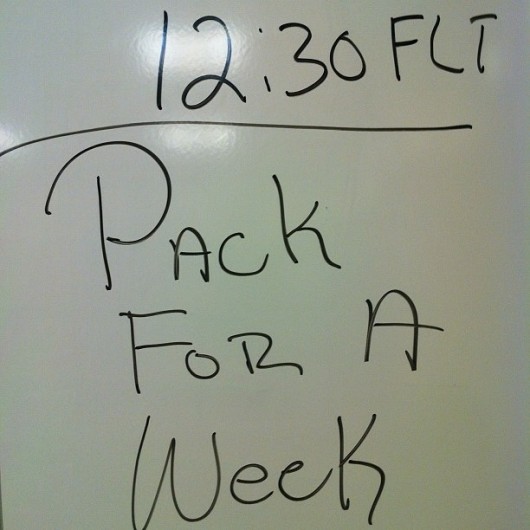 12:30 FLT
PACK
FOR A
Week